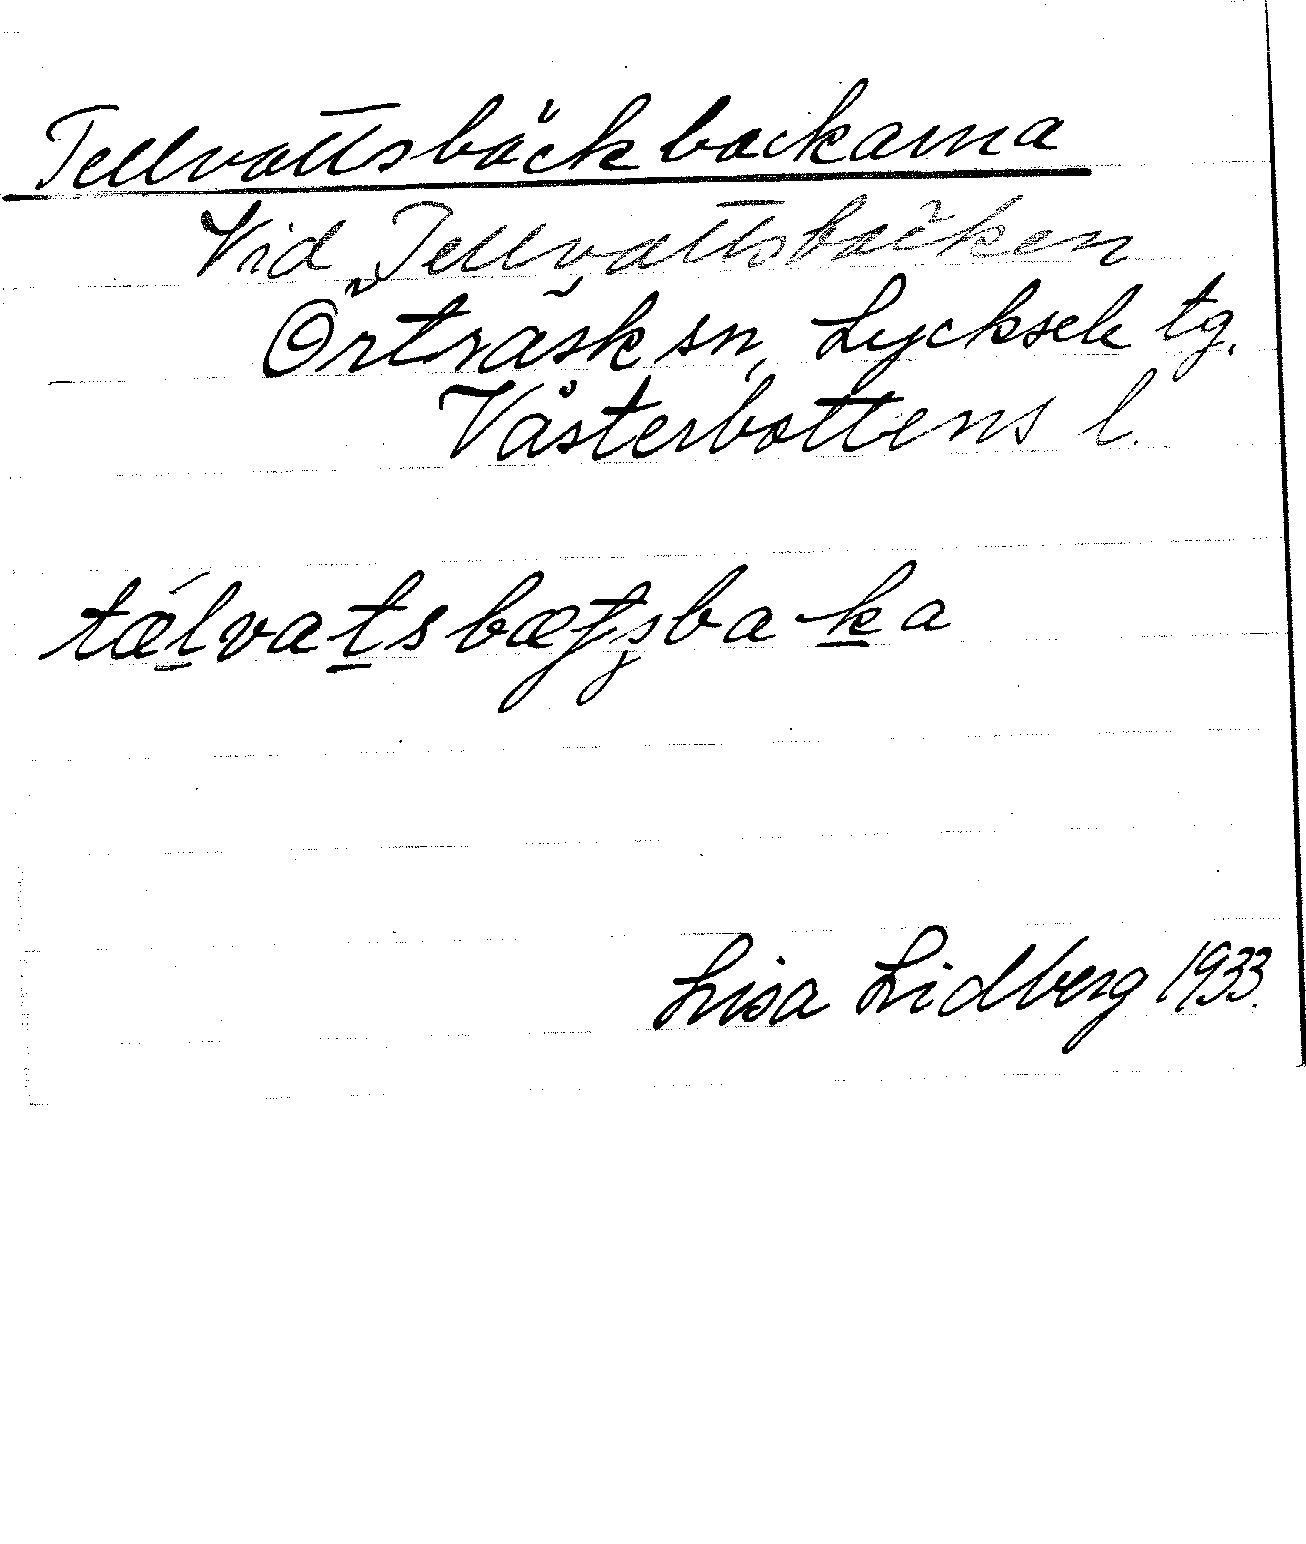 Tellvattsbäckbackarna
Vid Tellvattsbäcken
Örträsk sn, Lycksele tg.
Västerbottens l.
tælvatsbæƫsba-ka
Lisa Lidberg 1933.